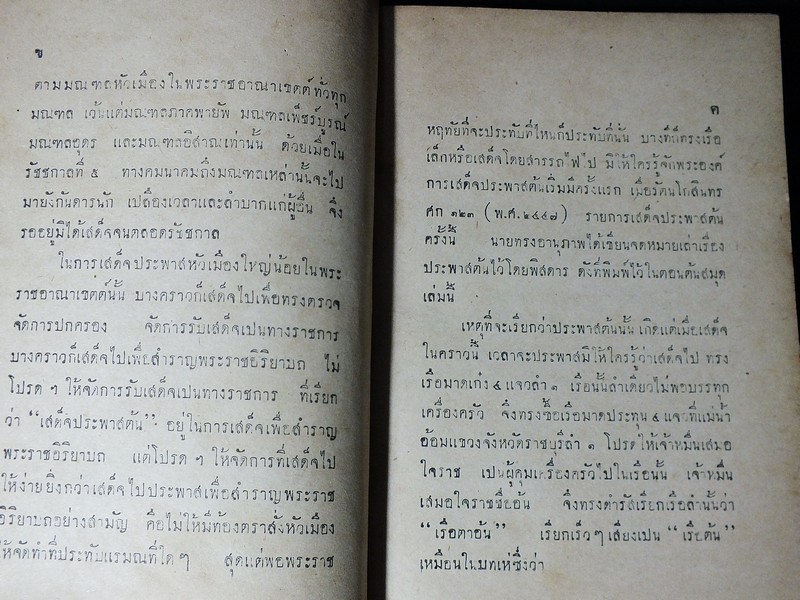 ข
ตามมณฑลหัวเมืองในพระราชอาณาเขตต์ทั่วทุก
มณฑล เว้นแต่มณฑลภาคพายัพ มณฑลเพ็ชร์บูรณ์
มณฑลอุดร และมณฑลอิสาณเท่านั้น ด้วยเมื่อใน
รัชชกาลที่ ๕ ทางคมนาคมถึงมณฑลเหล่านั้นจะไป
มายังกันดารนัก เปลืองเวลาและลำบากแก่ผู้อื่น จึง
รออยู่มิได้เสด็จจนตลอดรัชกาล
ในการเสด็จประพาสหัวเมืองใหญ่น้อยในพระ
ราชอาณาเขตต์นั้น บางคราวก็เสด็จไปเพื่อทรงตรวจ
จัดการปกครอง จัดการรับเสด็จเป็นทางราชการ
บางคราวก็เสด็จไปเพื่อสำราญพระราชอิริยาบถ ไม่
โปรด ฯ ให้จัดการรับเสด็จเป็นทางราชการ ที่เรียก
ว่า “เสด็จประพาสต้น” อยู่ในการเสด็จเพื่อสำราญ
พระราชอิริยาบถ แต่โปรด ฯ ให้จัดการที่เสด็จไป
ให้ง่ายยิ่งกว่าเสด็จไปประพาสเพื่อสำราญพระราช
อิริยาบถอย่างสามัญ คือไม่ให้มีท้องตราสั่งหัวเมือง
ให้จัดทำที่ประทับแรมณที่ใด ๆ สุดแต่พอพระราช
ค
หฤทัยที่จะประทับที่ไหนก็ประทับที่นั่น บางทีก็ทรงเรือ
เล็กหรือเสด็จโดยสารรถไฟไป มิให้ใครรู้จักพระองค์
การเสด็จประพาสต้นเริ่มมีครั้งแรก เมื่อรัตนโกสินทร
ศก ๑๒๓ (พ.ศ.๒๔๔๗) รายการเสด็จประพาสต้น
ครั้งนี้ นายทรงอานุภาพได้เขียนจดหมายเล่าเรื่อง
ประพาสต้นไว้โดยพิสดาร ดังที่พิมพ์ไว้ในตอนต้นสมุด
เล่มนี้
เหตุที่จะเรียกว่าประพาสต้นนั้น เกิดแต่เมื่อเสด็จ
ในคราวนี้ เวลาจะประพาสมิให้ใครรู้ว่าเสด็จไป ทรง
เรือมาดเก๋ง ๔ แจวลำ ๑ เรือนั้นลำเดียวไม่พอบรรทุก
เครื่องครัว จึงทรงซื้อเรือมาดประทุน ๔ แจวที่แม่น้ำ
อ้อมแขวงจังหวัดราชบุรีลำ ๑ โปรดให้เจ้าหมื่นเสมอ
ใจราช เป็นผู้คุมเครื่องครัวไปในเรือนั้น เจ้าหมื่น
เสมอใจราชชื่ออ้น จึงทรงดำรัสเรียกเรือลำนั้นว่า
“เรือตาอ้น” เรียกเร็ว ๆ เสียงเป็น “เรือต้น”
เหมือนในบทเห่ซึ่งว่า